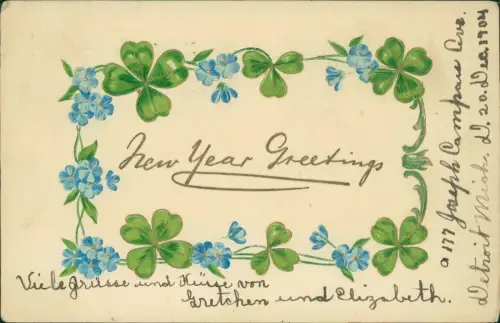 New Year Greetings
Viele Grüsse und Küsse von
Gretchen und Elizabeth.
177 Joseph Campau Ave.
Detroit Mich. D. 20. Dec. 1904